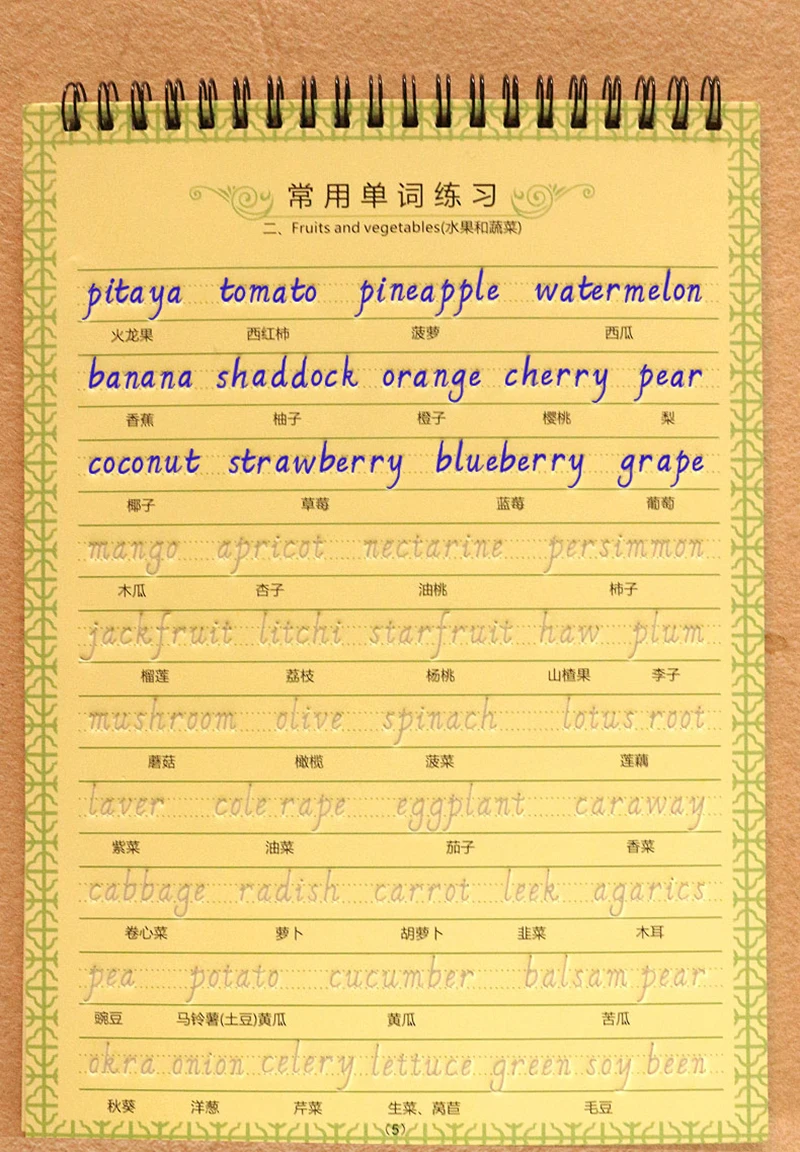 常用单词练习
二、Fruits and vegetables(水果和蔬菜)
pitaya tomato pineapple watermelon
火龙果 西红柿 菠萝 西瓜
banana shaddock orange cherry pear
香蕉 柚子 橙子 樱桃 梨
coconut strawberry blueberry grape
椰子 草莓 蓝莓 葡萄
mango apricot nectarine persimmon
木瓜 杏子 油桃 柿子
jackfruit litchi starfruit haw plum
榴莲 荔枝 杨桃 山楂果 李子
mushroom olive spinach lotus root
蘑菇 橄榄 菠菜 莲藕
laver cole rape eggplant caraway
紫菜 油菜 茄子 香菜
cabbage radish carrot leek agarics
卷心菜 萝卜 胡萝卜 韭菜 木耳
pea potato cucumber balsam pear
豌豆 马铃薯(土豆)黄瓜 黄瓜 苦瓜
okra onion celery lettuce green soy been
秋葵 洋葱 芹菜 生菜、莴苣 毛豆
(5)